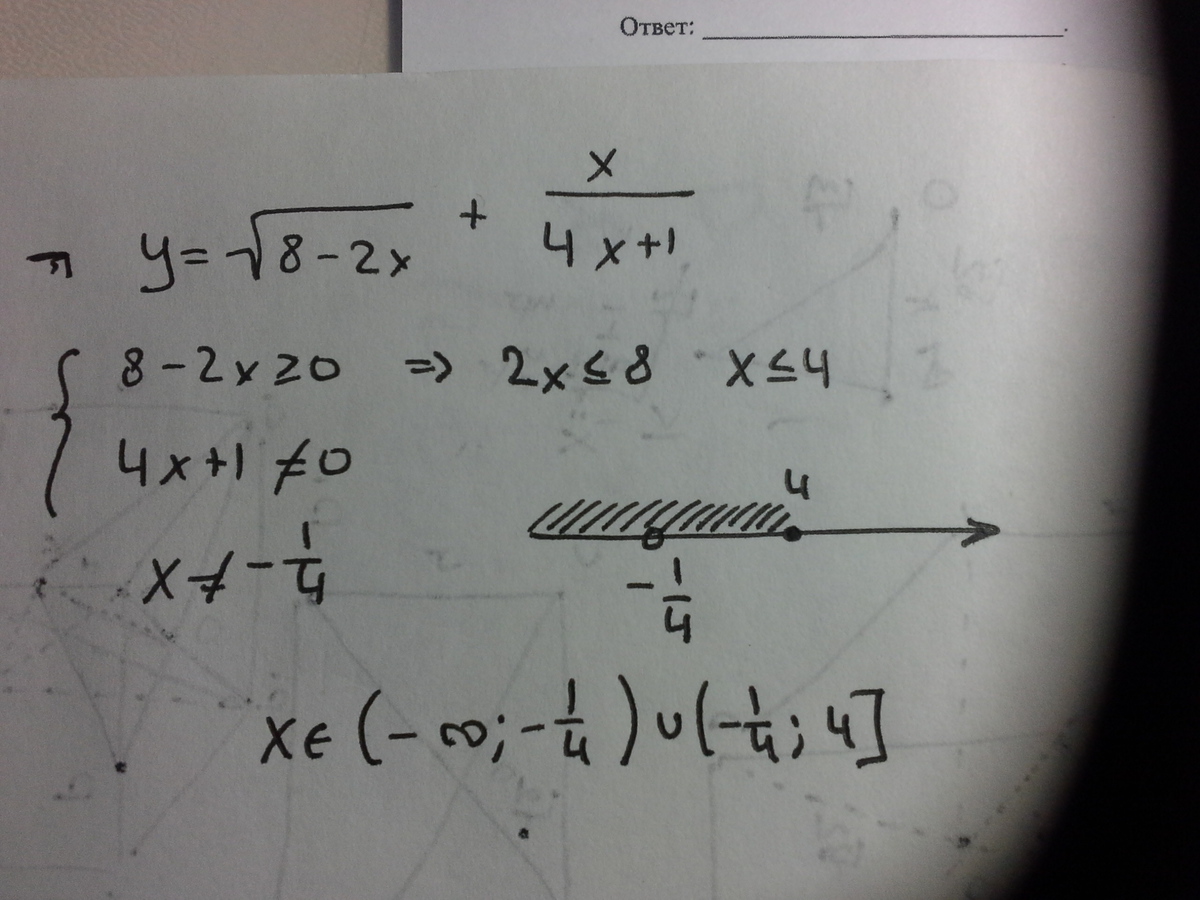 Ответ: ____________________.
y = √(8 - 2x) + x/(4x+1)
{ 8 - 2x ≥ 0 => 2x ≤ 8 x ≤ 4
4x+1 ≠ 0
4
x ≠ - 1/4
- 1/4
x ∈ (- ∞; - 1/4) ∪ (- 1/4; 4]